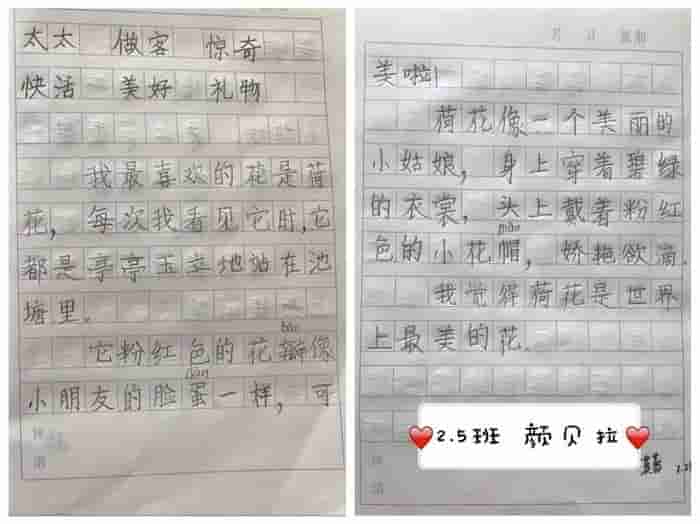 太太 做客 惊奇
快活 美好 礼物
我最喜欢的花是荷
花，每次我看见它时，它
都是亭亭玉立地站在池
塘里。
bàn
它粉红色的花瓣像
dàn
小朋友的脸蛋一样，可
评语
月 日 星期
美啦！
荷花像一个美丽的
小姑娘，身上穿着碧绿
的衣裳，头上戴着粉红
mào
色的小花帽，娇艳欲滴。
我觉得荷花是世界
上最美的花。
2.5班 颜贝拉
评语